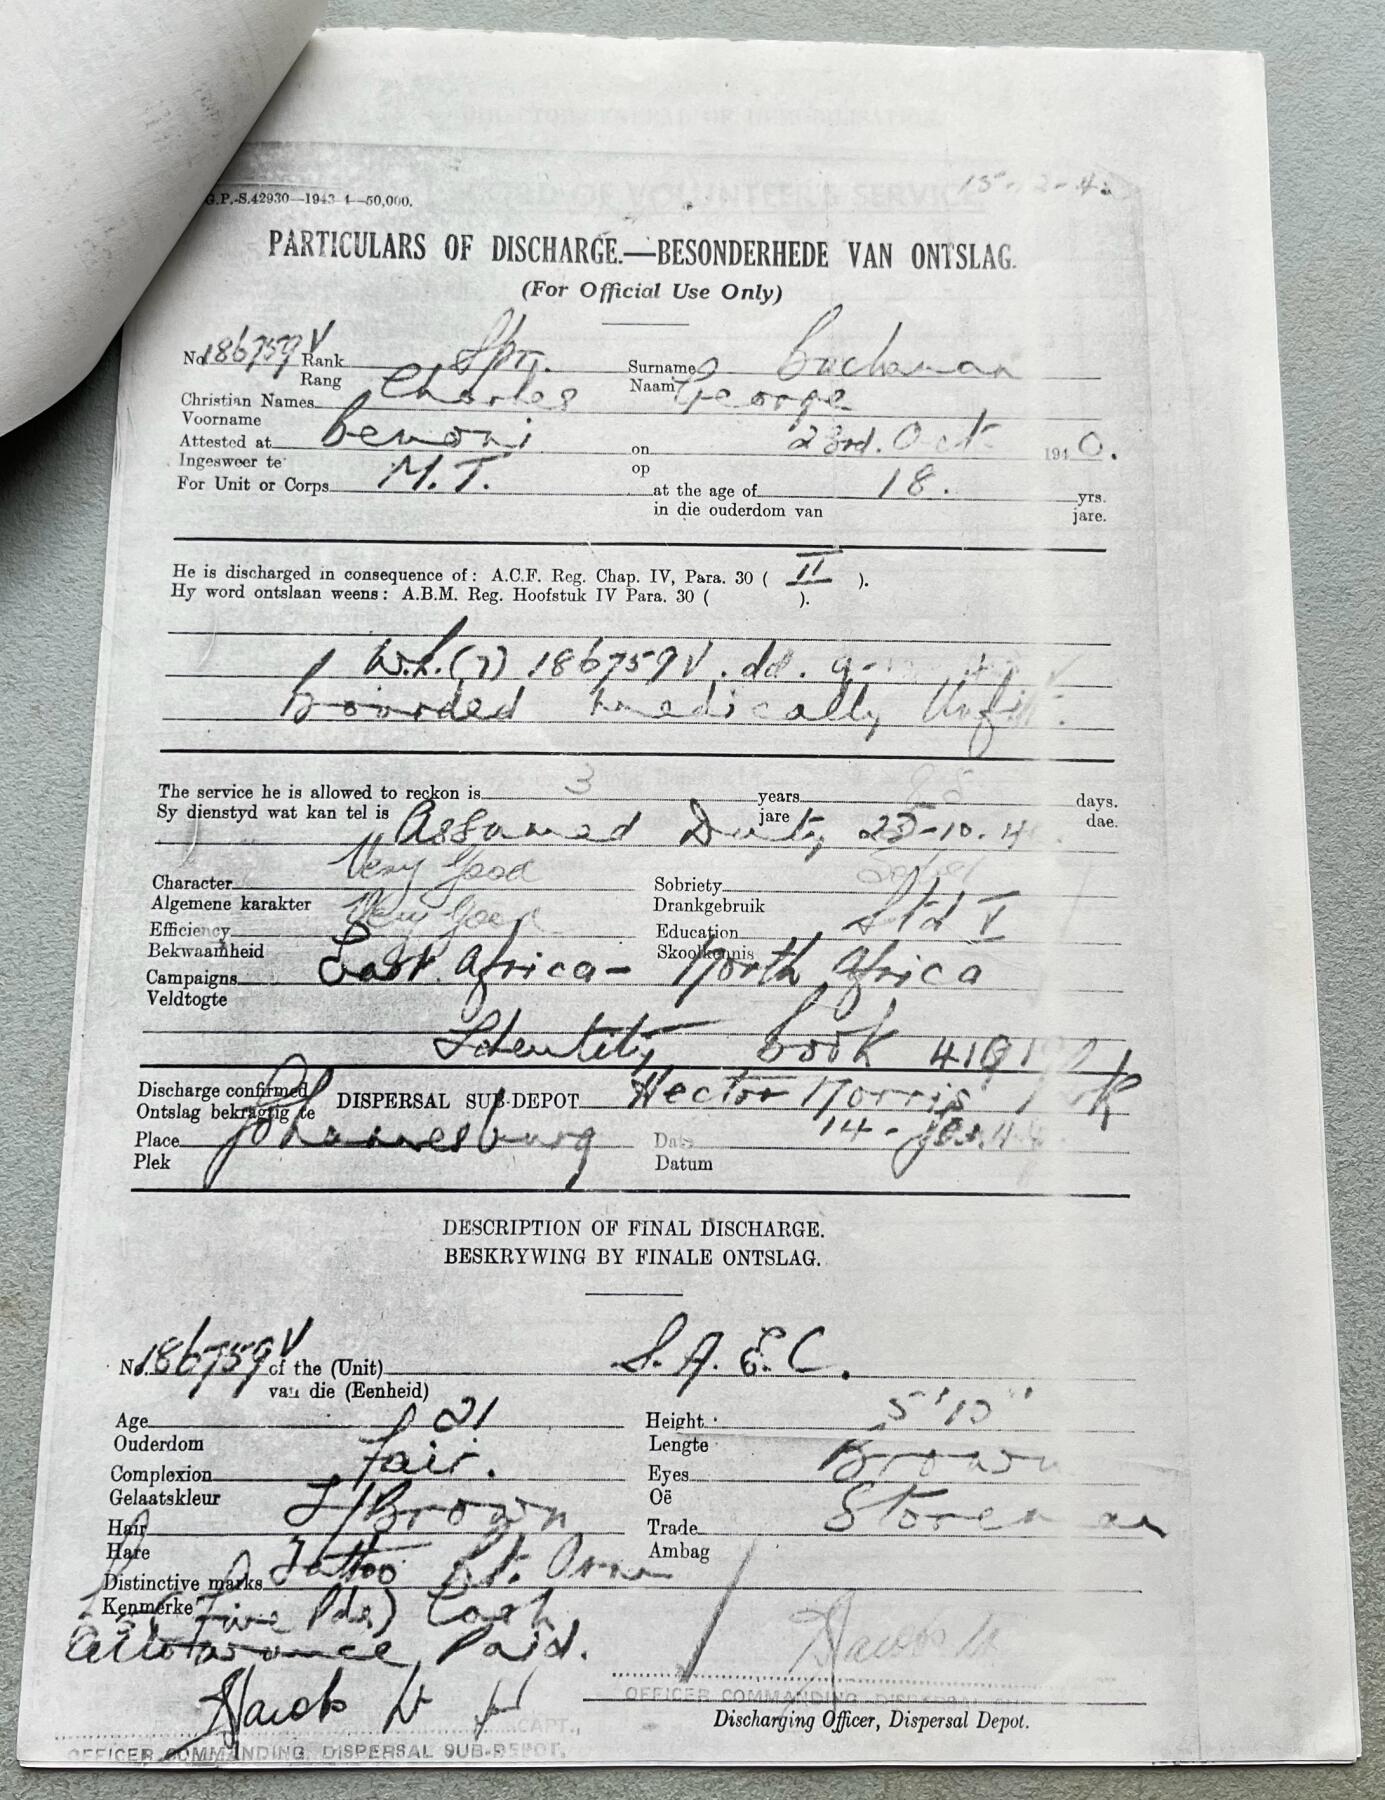 G.P.-S.42930—1943-4—50,000.
PARTICULARS OF DISCHARGE.—BESONDERHEDE VAN ONTSLAG.
(For Official Use Only)
No. 186759V Rank Spr. Surname Buchanan
Rang Naam
Christian Names Charles George
Voorname
Attested at Benoni on 23rd. Oct 1940.
Ingesweer te op
For Unit or Corps M.T. at the age of 18. yrs.
in die ouderdom van jare.
He is discharged in consequence of: A.C.F. Reg. Chap. IV, Para. 30 ( II ).
Hy word ontslaan weens: A.B.M. Reg. Hoofstuk IV Para. 30 ( ).
186759V. dd. 9-
boarded medically Unfit.
The service he is allowed to reckon is 3 years days.
Sy dienstyd wat kan tel is jare dae.
Assumed Duty
Character Very Good Sobriety
Algemene karakter Drankgebruik
Efficiency Very Good Education Std V
Bekwaamheid Skoolkennis
Campaigns East Africa - North Africa
Veldtogte
Identity book
Discharge confirmed DISPERSAL SUB-DEPOT Hector Norris Park
Ontslag bekragtig te
Place Johannesburg Date 14-
Plek Datum
DESCRIPTION OF FINAL DISCHARGE.
BESKRYWING BY FINALE ONTSLAG.
No. 186759V of the (Unit) S.A.E.C.
van die (Eenheid)
Age 21 Height 5'10"
Ouderdom Lengte
Complexion Fair. Eyes Brown
Gelaatskleur Oë
Hair L/Brown Trade Storeman
Hare Ambag
Distinctive marks Tattoo Rt. Arm
Kenmerke (Five Pds) Cash
allowance Paid.
CAPT.,
OFFICER COMMANDING, DISPERSAL SUB-
Discharging Officer, Dispersal Depot.
OFFICER COMMANDING, DISPERSAL SUB-DEPOT.